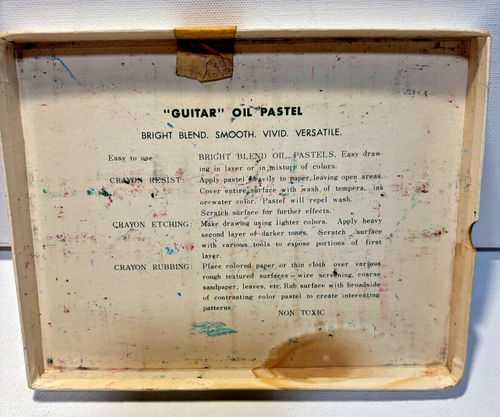 "GUITAR" OIL PASTEL
BRIGHT BLEND. SMOOTH. VIVID. VERSATILE.
Easy to use BRIGHT BLEND OIL PASTELS. Easy draw-
ing in layer or in mixture of colors.
CRAYON RESIST: Apply pastel heavily to paper, leaving open areas.
Cover entire surface with wash of tempera, ink
or water color. Pastel will repel wash.
Scratch surface for further effects.
CRAYON ETCHING: Make drawing using lighter colors. Apply heavy
second layer of darker tones. Scratch surface
with various tools to expose portions of first
layer.
CRAYON RUBBING: Place colored paper or thin cloth over various
rough textured surfaces—wire screening, coarse
sandpaper, leaves, etc. Rub surface with broadside
of contrasting color pastel to create interesting
patterns
NON TOXIC